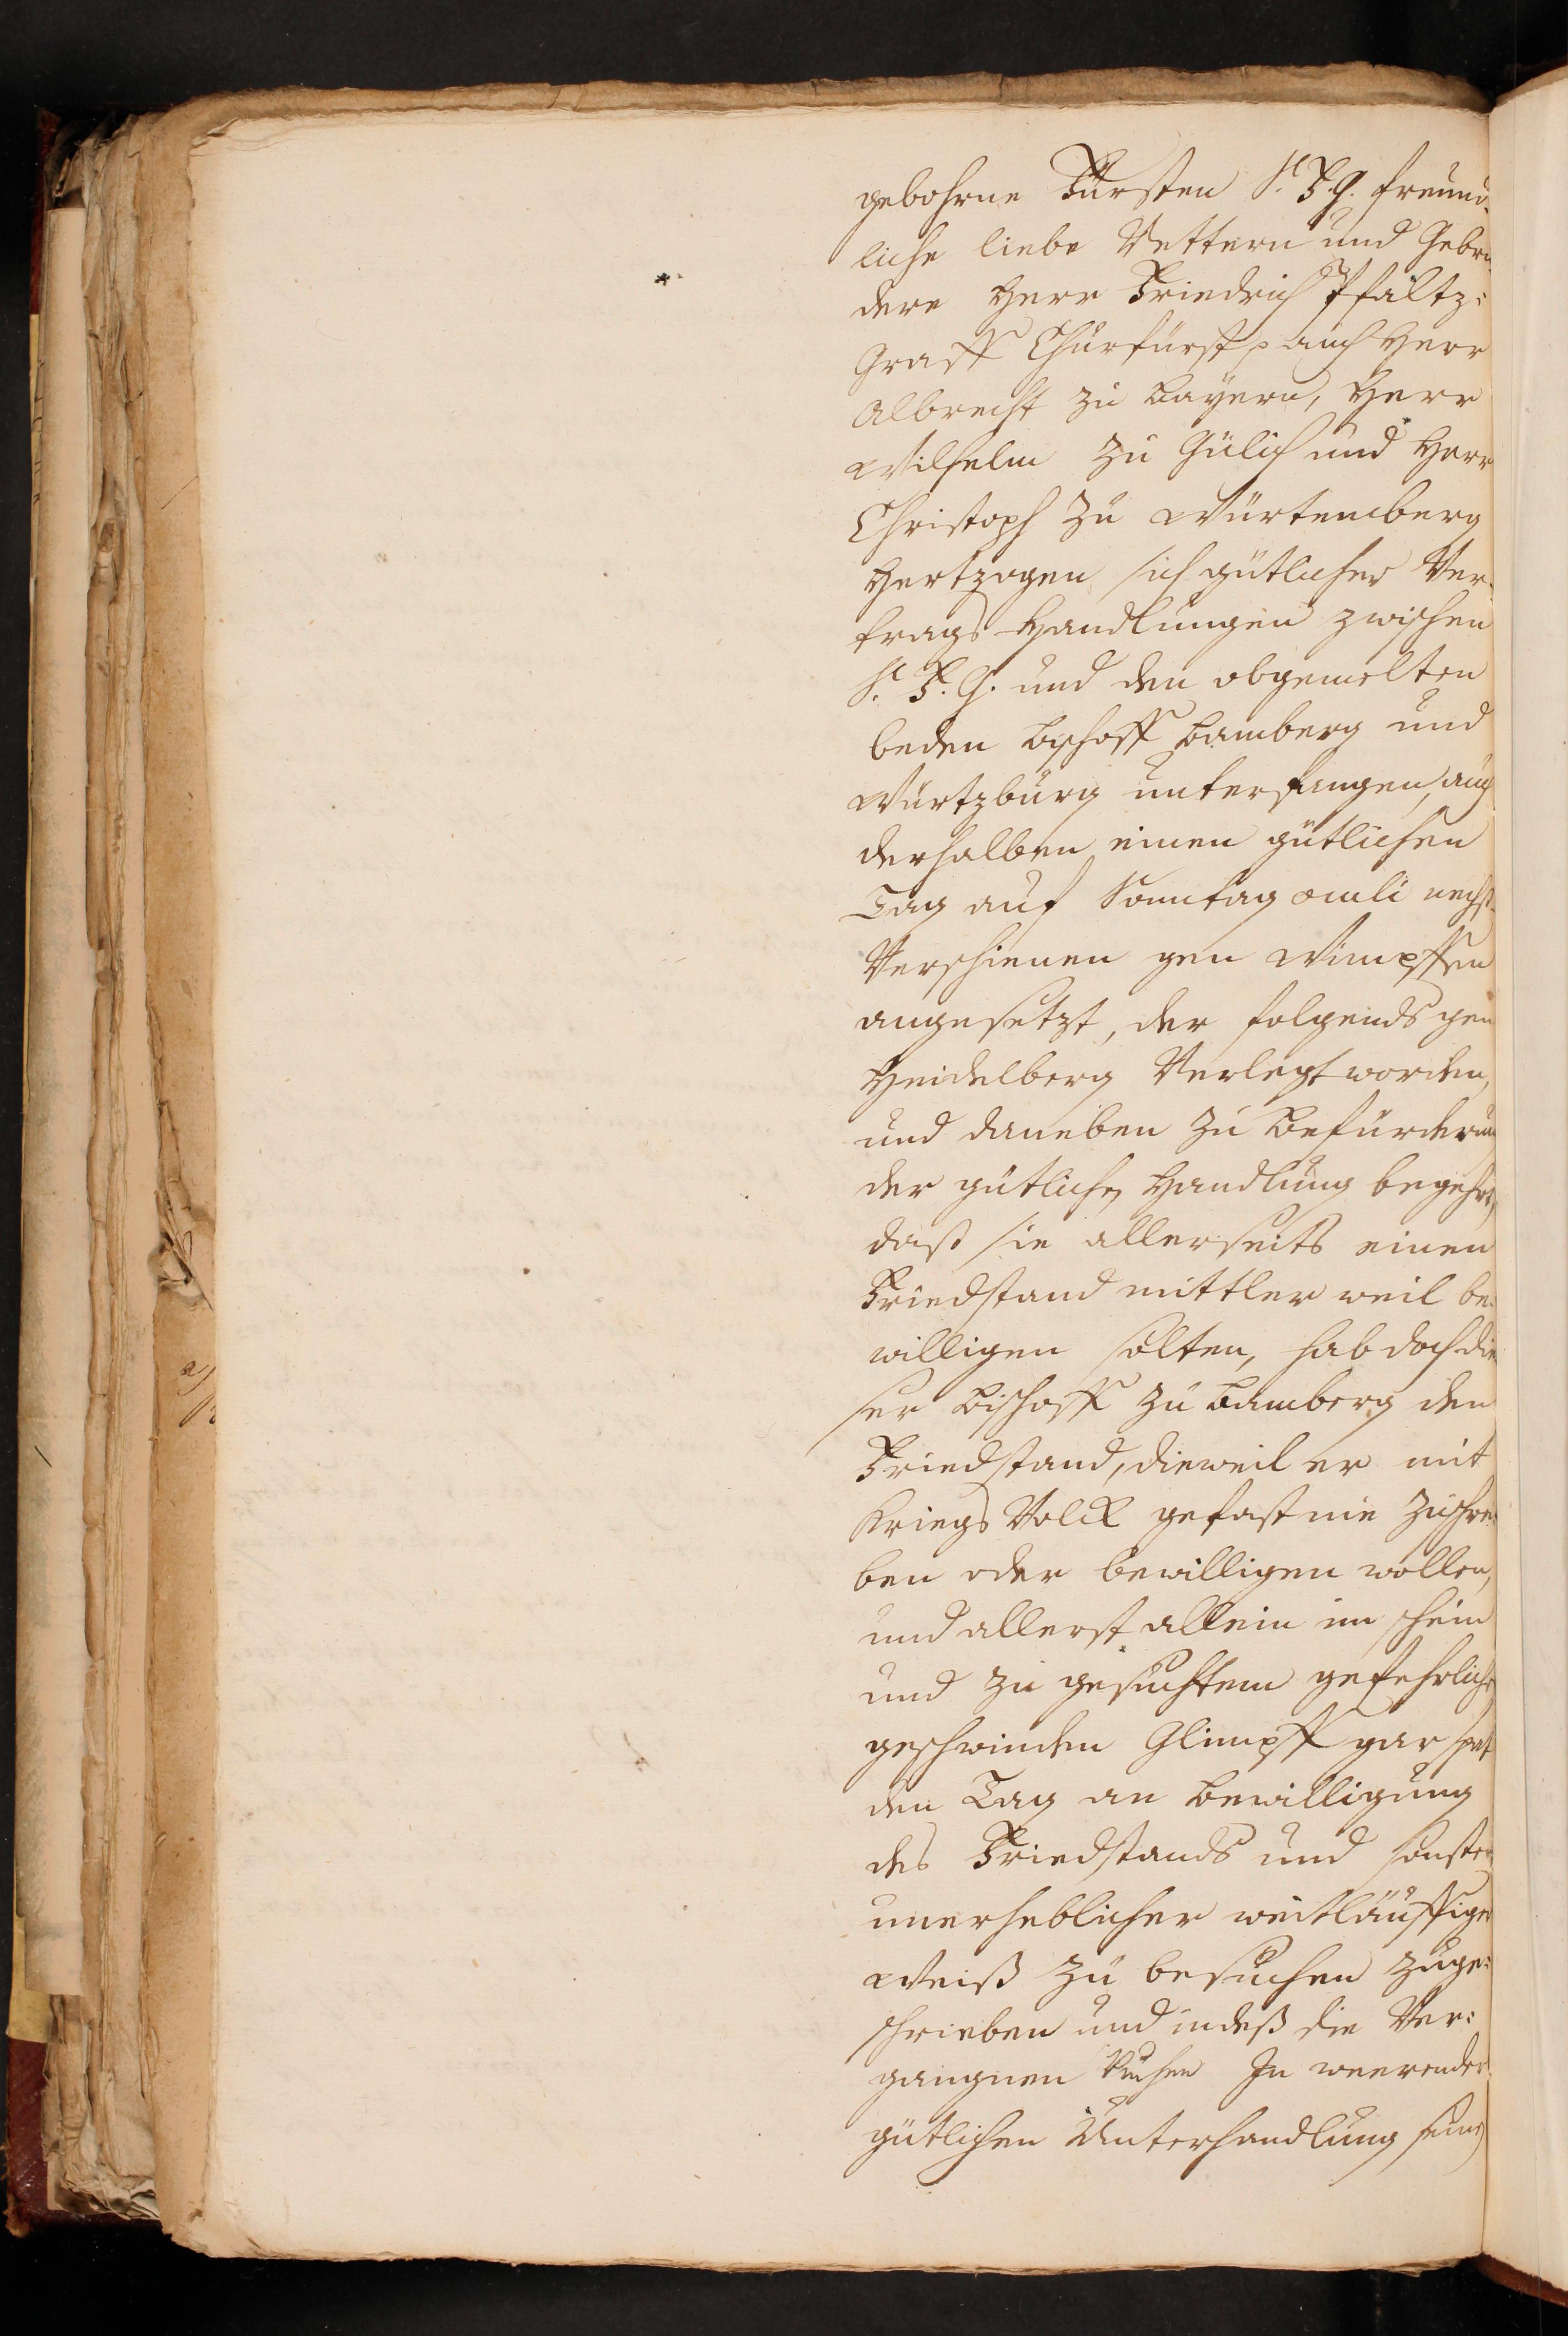 gebohrne Fürsten S. F. G. freund-
liche liebe Vettern und Gebrü-
dere Herr Friedrich Pfaltz-
Graff Churfürst p auch Herr
Albrecht zu Bayern, Herr
Wilhelm zu Gülich und Herr
Christoph zu Würtemberg
Hertzogen sich gütlicher Ver-
trags Handlungen zwischen
S. F. G. und den obgemelten
beden Bischoff Bamberg und
Würtzburg unterfangen, auch
derhalben einen gütlichen
Tag auf Sonntag oculi nechst
Verschienen gen Wimpffen
angesetzt, der folgends gen
Heidelberg Verlegt worden,
und daneben zu Befürderung
der gütlichen Handlung begehrt,
daß sie allerseits einen
Friedstand mittler weil be-
willigen solten, hab doch die
ser Bischoff zu Bamberg den
Friedstand, dieweil er mit
Kriegs Volck gefast nie zuschrei
ben oder bewilligen wollen,
und allerst allein im schein
und zu gesuchtem gefehrlichen
geschwinden Glimpff gar spat
den Tag an Bewilligung
des Friedstands und sonsten
unerheblicher weitläuffiger
Weiß zu besuchen zuge-
schrieben und indeß die Ver-
gangnen In weerender
gütlichen Unterhandlung seine